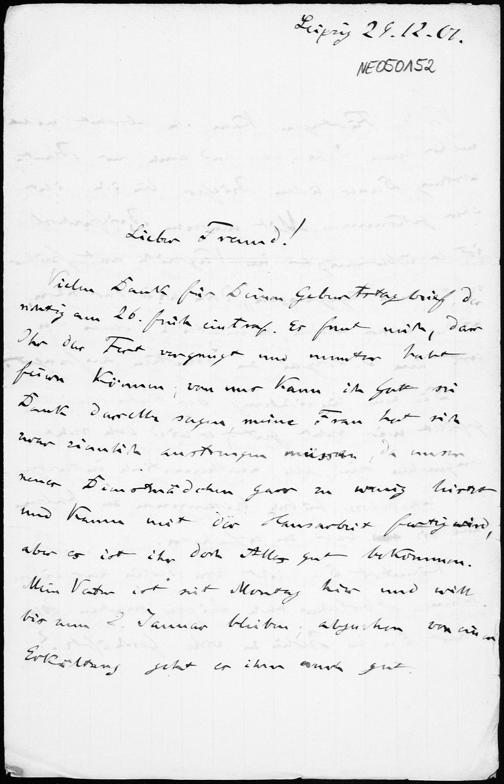 Leipzig 29.12.01.
NE050152
Lieber Freund!
Vielen Dank für Deinen Geburtstagsbrief, der
richtig am 26. früh eintraf. Es freut mich, dass
Ihr das Fest vergnügt und munter habt
feiern können; von uns kann ich Gott sei
Dank dasselbe sagen, meine Frau hat sich
zwar ziemlich anstrengen müssen, da unser
neues Dienstmädchen ganz zu wenig leistet
und kaum mit der Hausarbeit fertig wird,
aber es ist ihr doch Alles gut bekommen.
Mein Vater ist seit Montag hier und will
bis zum 2. Januar bleiben; abgesehen von einer
Erkältung geht es ihm auch gut.